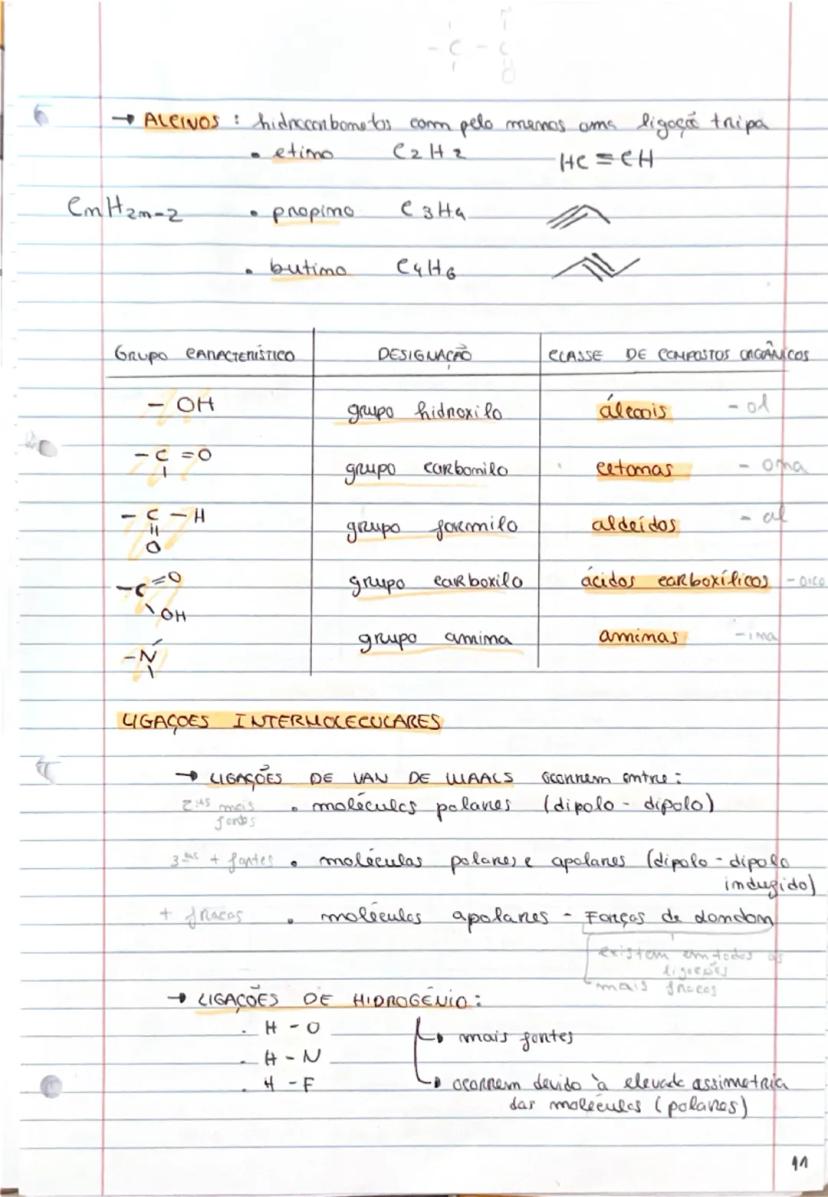 → ALCINOS : hidrocarbonetos com pelo menos uma ligação tripa
• etino C2H2 HC≡CH
CnH2n-2 • propino C3H4
• butino C4H6
GRUPO CARACTERÍSTICO DESIGNAÇÃO CLASSE DE COMPOSTOS ORGÂNICOS
- OH grupo hidroxilo álcoois - ol
- C = O grupo carbonilo cetonas - ona
- C - H grupo formilo aldeídos - al
O
- C = O grupo carboxilo ácidos carboxílicos - oico
OH
- N grupo amina aminas - ina
LIGAÇÕES INTERMOLECULARES
→ LIGAÇÕES DE VAN DE WAALS ocorrem entre :
2as mais fortes • moléculas polares (dipolo - dipolo)
3as + fortes • moléculas polares e apolares (dipolo - dipolo
induzido)
+ fracas • moléculas apolares - Forças de London
existem em todas as
ligações
mais fracas
→ LIGAÇÕES DE HIDROGÉNIO :
. H - O
↳ mais fortes
. H - N
. H - F ↳ ocorrem devido à elevada assimetria
das moléculas (polares)
11